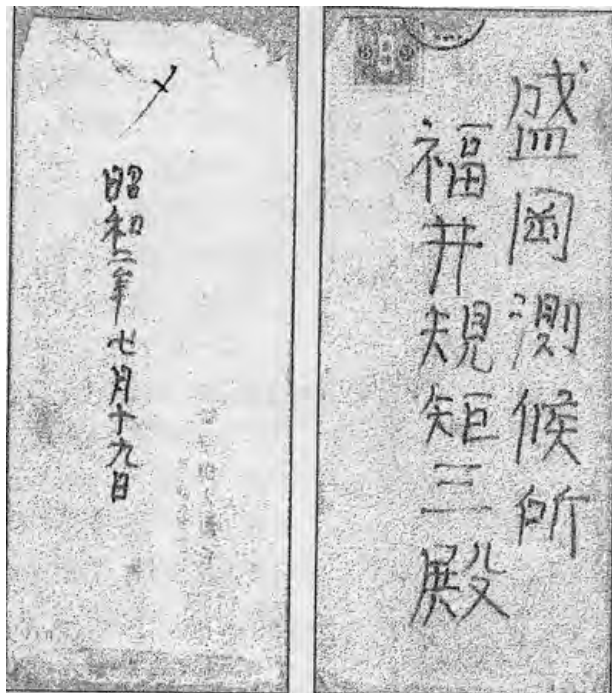 盛岡測候所
福井規矩三殿
昭和二年七月十九日
〆